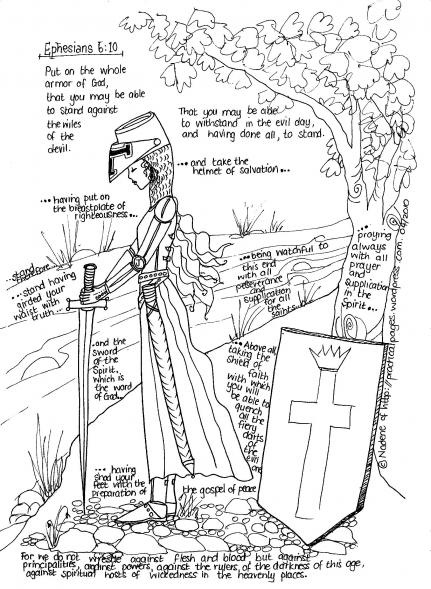 Ephesians 6:10
Put on the whole
armor of God,
that you may be able
to stand against
the wiles
of the
devil.
That you may be able
to withstand in the evil day,
and having done all, to stand.
...and take the
helmet of salvation...
...having put on
the breastplate of
righteousness...
...stand
therefore
...stand having
girded your
waist with
truth...
...being watchful to
this end
with all
perseverance
and
supplication
for all
the saints
...praying
always
with all
prayer
and
supplication
in the
Spirit...
...and the
sword
of the
Spirit,
which is
the word
of God...
...Above all,
taking the
shield of
faith
with which
you will
be able to
quench
all the
fiery
darts
of
the
evil
one
...having
shod your
feet with the
preparation of
the gospel of peace
For we do not wrestle against flesh and blood but against
principalities, against powers, against the rulers of the darkness of this age,
against spiritual hosts of wickedness in the heavenly places.
© Nadene of http://practicalpages.wordpress.com